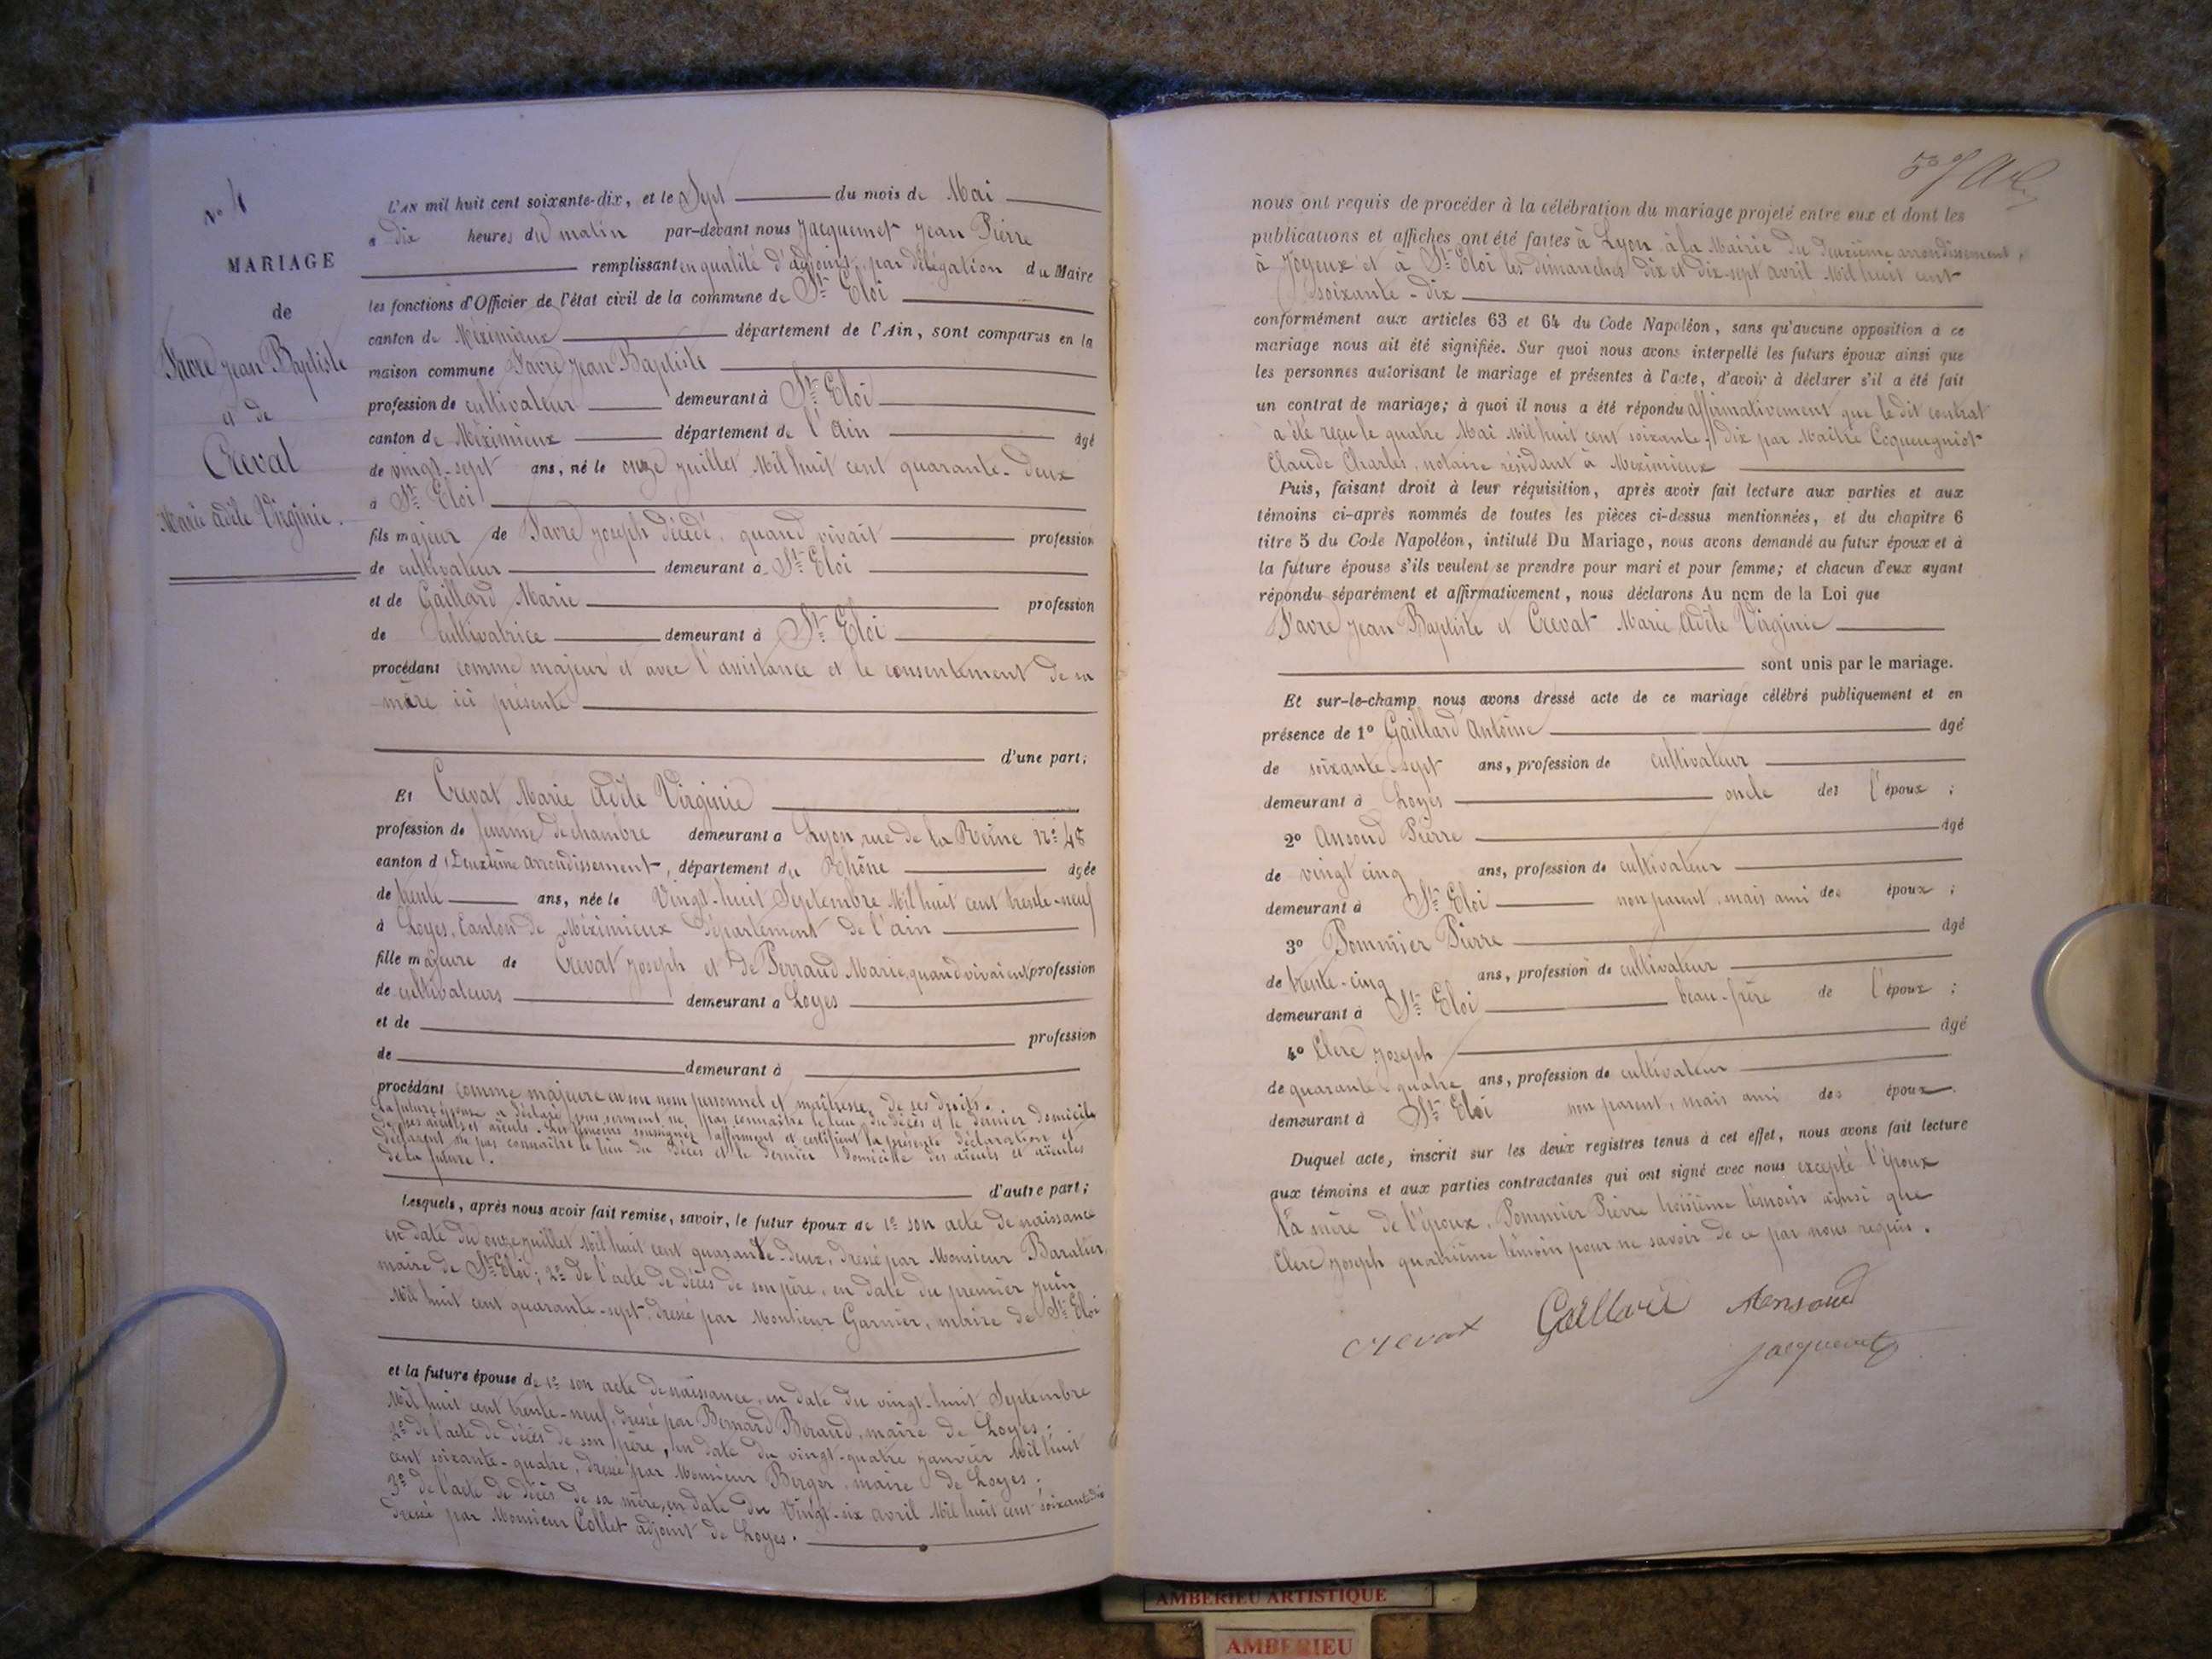 N° 4
MARIAGE
de
Favre Jean Baptiste
et de
Crevat
Marie Adèle Virginie.
L'AN mil huit cent soixante-dix, et le Sept du mois de Mai
à dix heures du matin par-devant nous Jacquemet Jean Pierre
remplissant en qualité d'adjoint, par délégation du Maire
les fonctions d'Officier de l'état civil de la commune de St Eloi
canton de Méximieux département de l'Ain, sont comparus en la
maison commune Favre Jean Baptiste
profession de cultivateur demeurant à St Eloi
canton de Méximieux département de l'Ain âgé
de vingt-sept ans, né le onze juillet Mil huit cent quarante-deux
à St Eloi
fils majeur de Favre Joseph décédé, quand vivait profession
de cultivateur demeurant à St Eloi
et de Gaillard Marie profession
de cultivatrice demeurant à St Eloi
procédant comme majeur et avec l'assistance et le consentement de sa
mère ici présente
d'une part;
Et Crevat Marie Adèle Virginie
profession de femme de chambre demeurant à Lyon, rue de la Reine n° 48
canton d Deuxième arrondissement, département du Rhône âgée
de trente ans, née le Vingt-huit Septembre Mil huit cent trente-neuf
à Loyes, Canton de Méximieux Département de l'ain
fille majeure de Crevat Joseph et de Perraud Marie, quand vivaient profession
de cultivateurs demeurant à Loyes
et de profession
de demeurant à
procédant comme majeure en son nom personnel et maîtresse de ses droits.
La future épouse a déclaré sous serment ne pas connaître le lieu du décès et le dernier domicile
de ses aïeuls et aïeules. Les témoins soussignés affirment et certifient la présente déclaration et
déclarent ne pas connaître le lieu du décès et le dernier domicile des aïeuls et aïeules
de la future.
d'autre part;
Lesquels, après nous avoir fait remise, savoir, le futur époux de 1° son acte de naissance
en date du onze juillet Mil huit cent quarante-deux, dressé par Monsieur Baratier,
maire de St Eloi; 2° de l'acte de décès de son père, en date du premier Juin
Mil huit cent quarante-sept, dressé par Monsieur Garnier, maire de St Eloi
et la future épouse de 1° son acte de naissance, en date du vingt-huit Septembre
Mil huit cent trente-neuf, dressé par Bernard Beraud, maire de Loyes;
2° de l'acte de décès de son père, en date du vingt-quatre janvier Mil huit
cent soixante-quatre, dressé par Monsieur Berger, maire de Loyes;
3° de l'acte de décès de sa mère, en date du Vingt-six avril Mil huit cent soixante-dix
dressé par Monsieur Collet adjoint de Loyes.
nous ont requis de procéder à la célébration du mariage projeté entre eux et dont les
publications et affiches ont été faites à Lyon à la Mairie du deuxième arrondissement,
à Joyeux et à St Eloi les dimanches dix et dix-sept avril Mil huit cent
soixante-dix
conformément aux articles 63 et 64 du Code Napoléon, sans qu'aucune opposition à ce
mariage nous ait été signifiée. Sur quoi nous avons interpellé les futurs époux ainsi que
les personnes autorisant le mariage et présentes à l'acte, d'avoir à déclarer s'il a été fait
un contrat de mariage; à quoi il nous a été répondu affirmativement que le dit contrat
a été reçu le quatre Mai Mil huit cent soixante-dix par Maître Coqueugniot
Claude Charles, notaire résidant à Meximieux
Puis, faisant droit à leur réquisition, après avoir fait lecture aux parties et aux
témoins ci-après nommés de toutes les pièces ci-dessus mentionnées, et du chapitre 6
titre 5 du Code Napoléon, intitulé Du Mariage, nous avons demandé au futur époux et à
la future épouse s'ils veulent se prendre pour mari et pour femme; et chacun d'eux ayant
répondu séparément et affirmativement, nous déclarons Au nom de la Loi que
Favre Jean Baptiste et Crevat Marie Adèle Virginie
sont unis par le mariage.
Et sur-le-champ nous avons dressé acte de ce mariage célébré publiquement et en
présence de 1° Gaillard Antoine âgé
de soixante-sept ans, profession de cultivateur
demeurant à Loyes oncle de l'époux;
2° Ansoud Pierre âgé
de vingt cinq ans, profession de cultivateur
demeurant à St Eloi non parent, mais ami des époux;
3° Pommier Pierre âgé
de trente-cinq ans, profession de cultivateur
demeurant à St Eloi beau-frère de l'époux;
4° Clerc Joseph âgé
de quarante quatre ans, profession de cultivateur
demeurant à St Eloi non parent, mais ami des époux.
Duquel acte, inscrit sur les deux registres tenus à cet effet, nous avons fait lecture
aux témoins et aux parties contractantes qui ont signé avec nous excepté l'époux
la mère de l'époux, Pommier Pierre troisième témoin ainsi que
Clerc Joseph quatrième témoin pour ne savoir de ce par nous requis.
Crevat Gaillard Ansoud
Jacquemet
AMBERIEU ARTISTIQUE
AMBERIEU